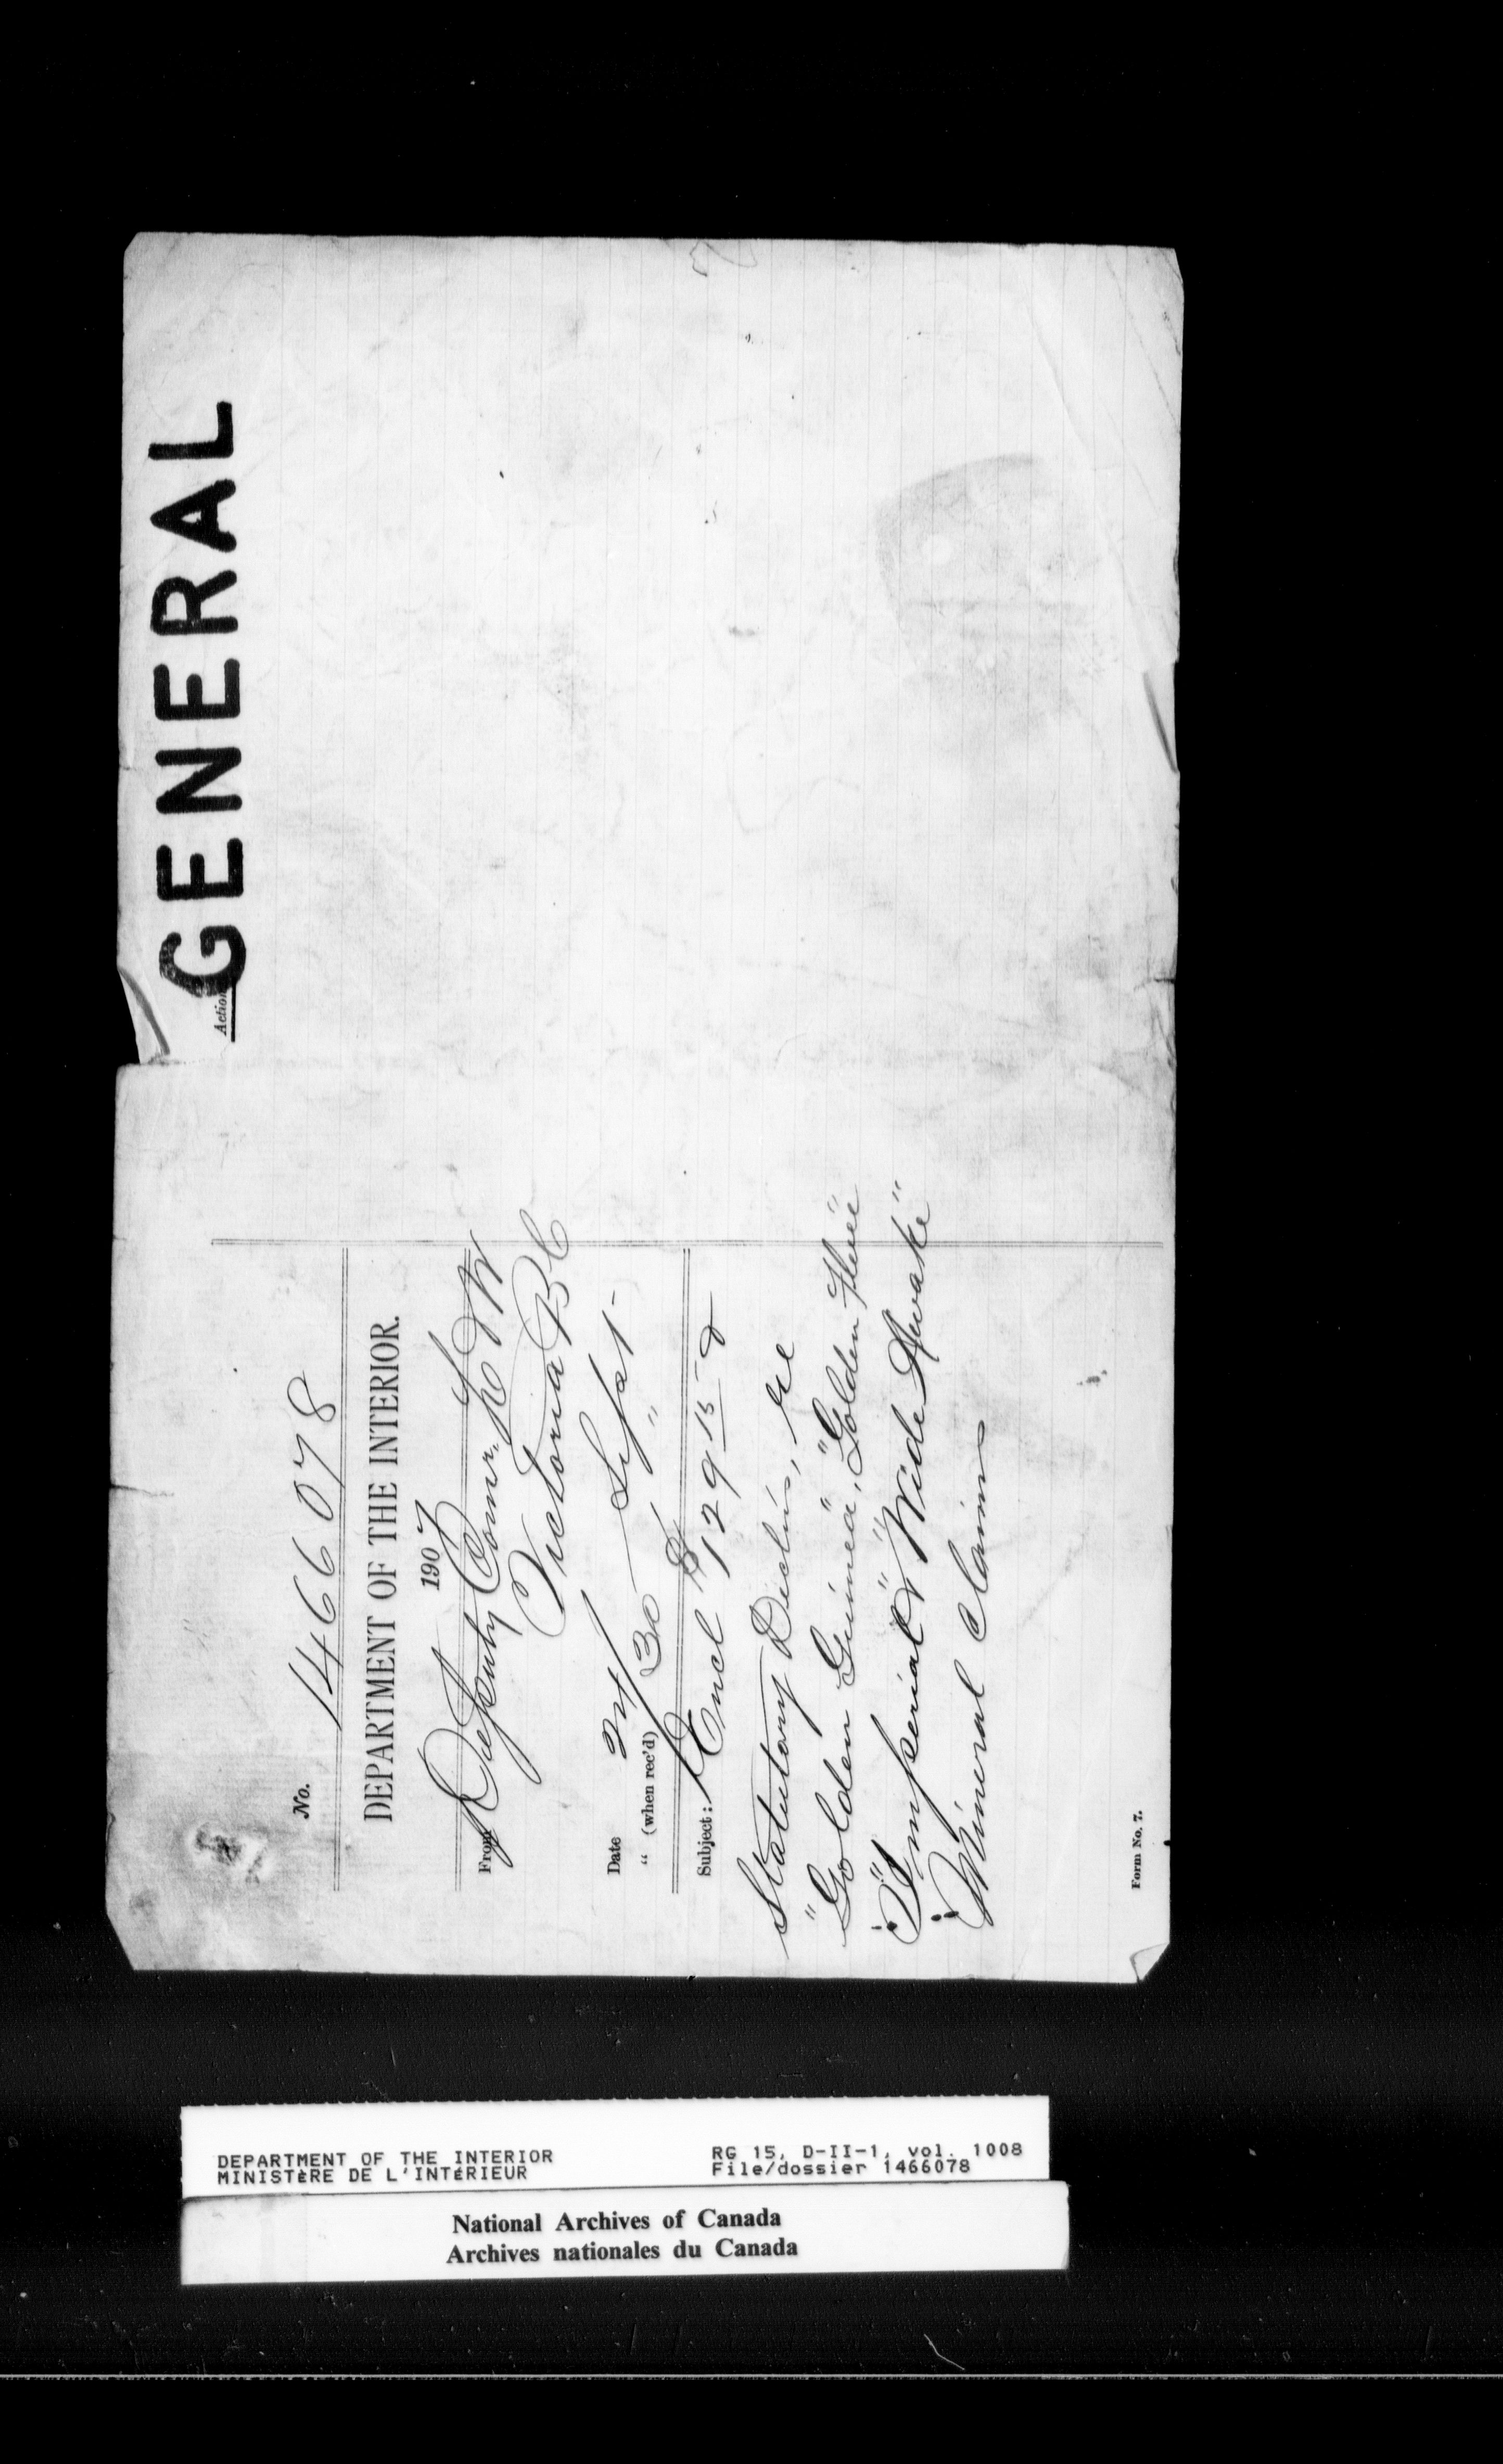 GENERAL
Action
No. 1466078
DEPARTMENT OF THE INTERIOR.
1907
From Deputy Comr. L & W
Victoria BC
Date 24 Sept
" (when rec'd) 30 "
Subject: Encl $129 15 &
Statutory Declns, re
"Golden Guinea", "Golden
"Imperial" & "Wide Awake"
Mineral Claims
Form No. 7.
DEPARTMENT OF THE INTERIOR
MINISTÈRE DE L'INTÉRIEUR
RG 15, D-II-1, vol. 1008
File/dossier 1466078
National Archives of Canada
Archives nationales du Canada